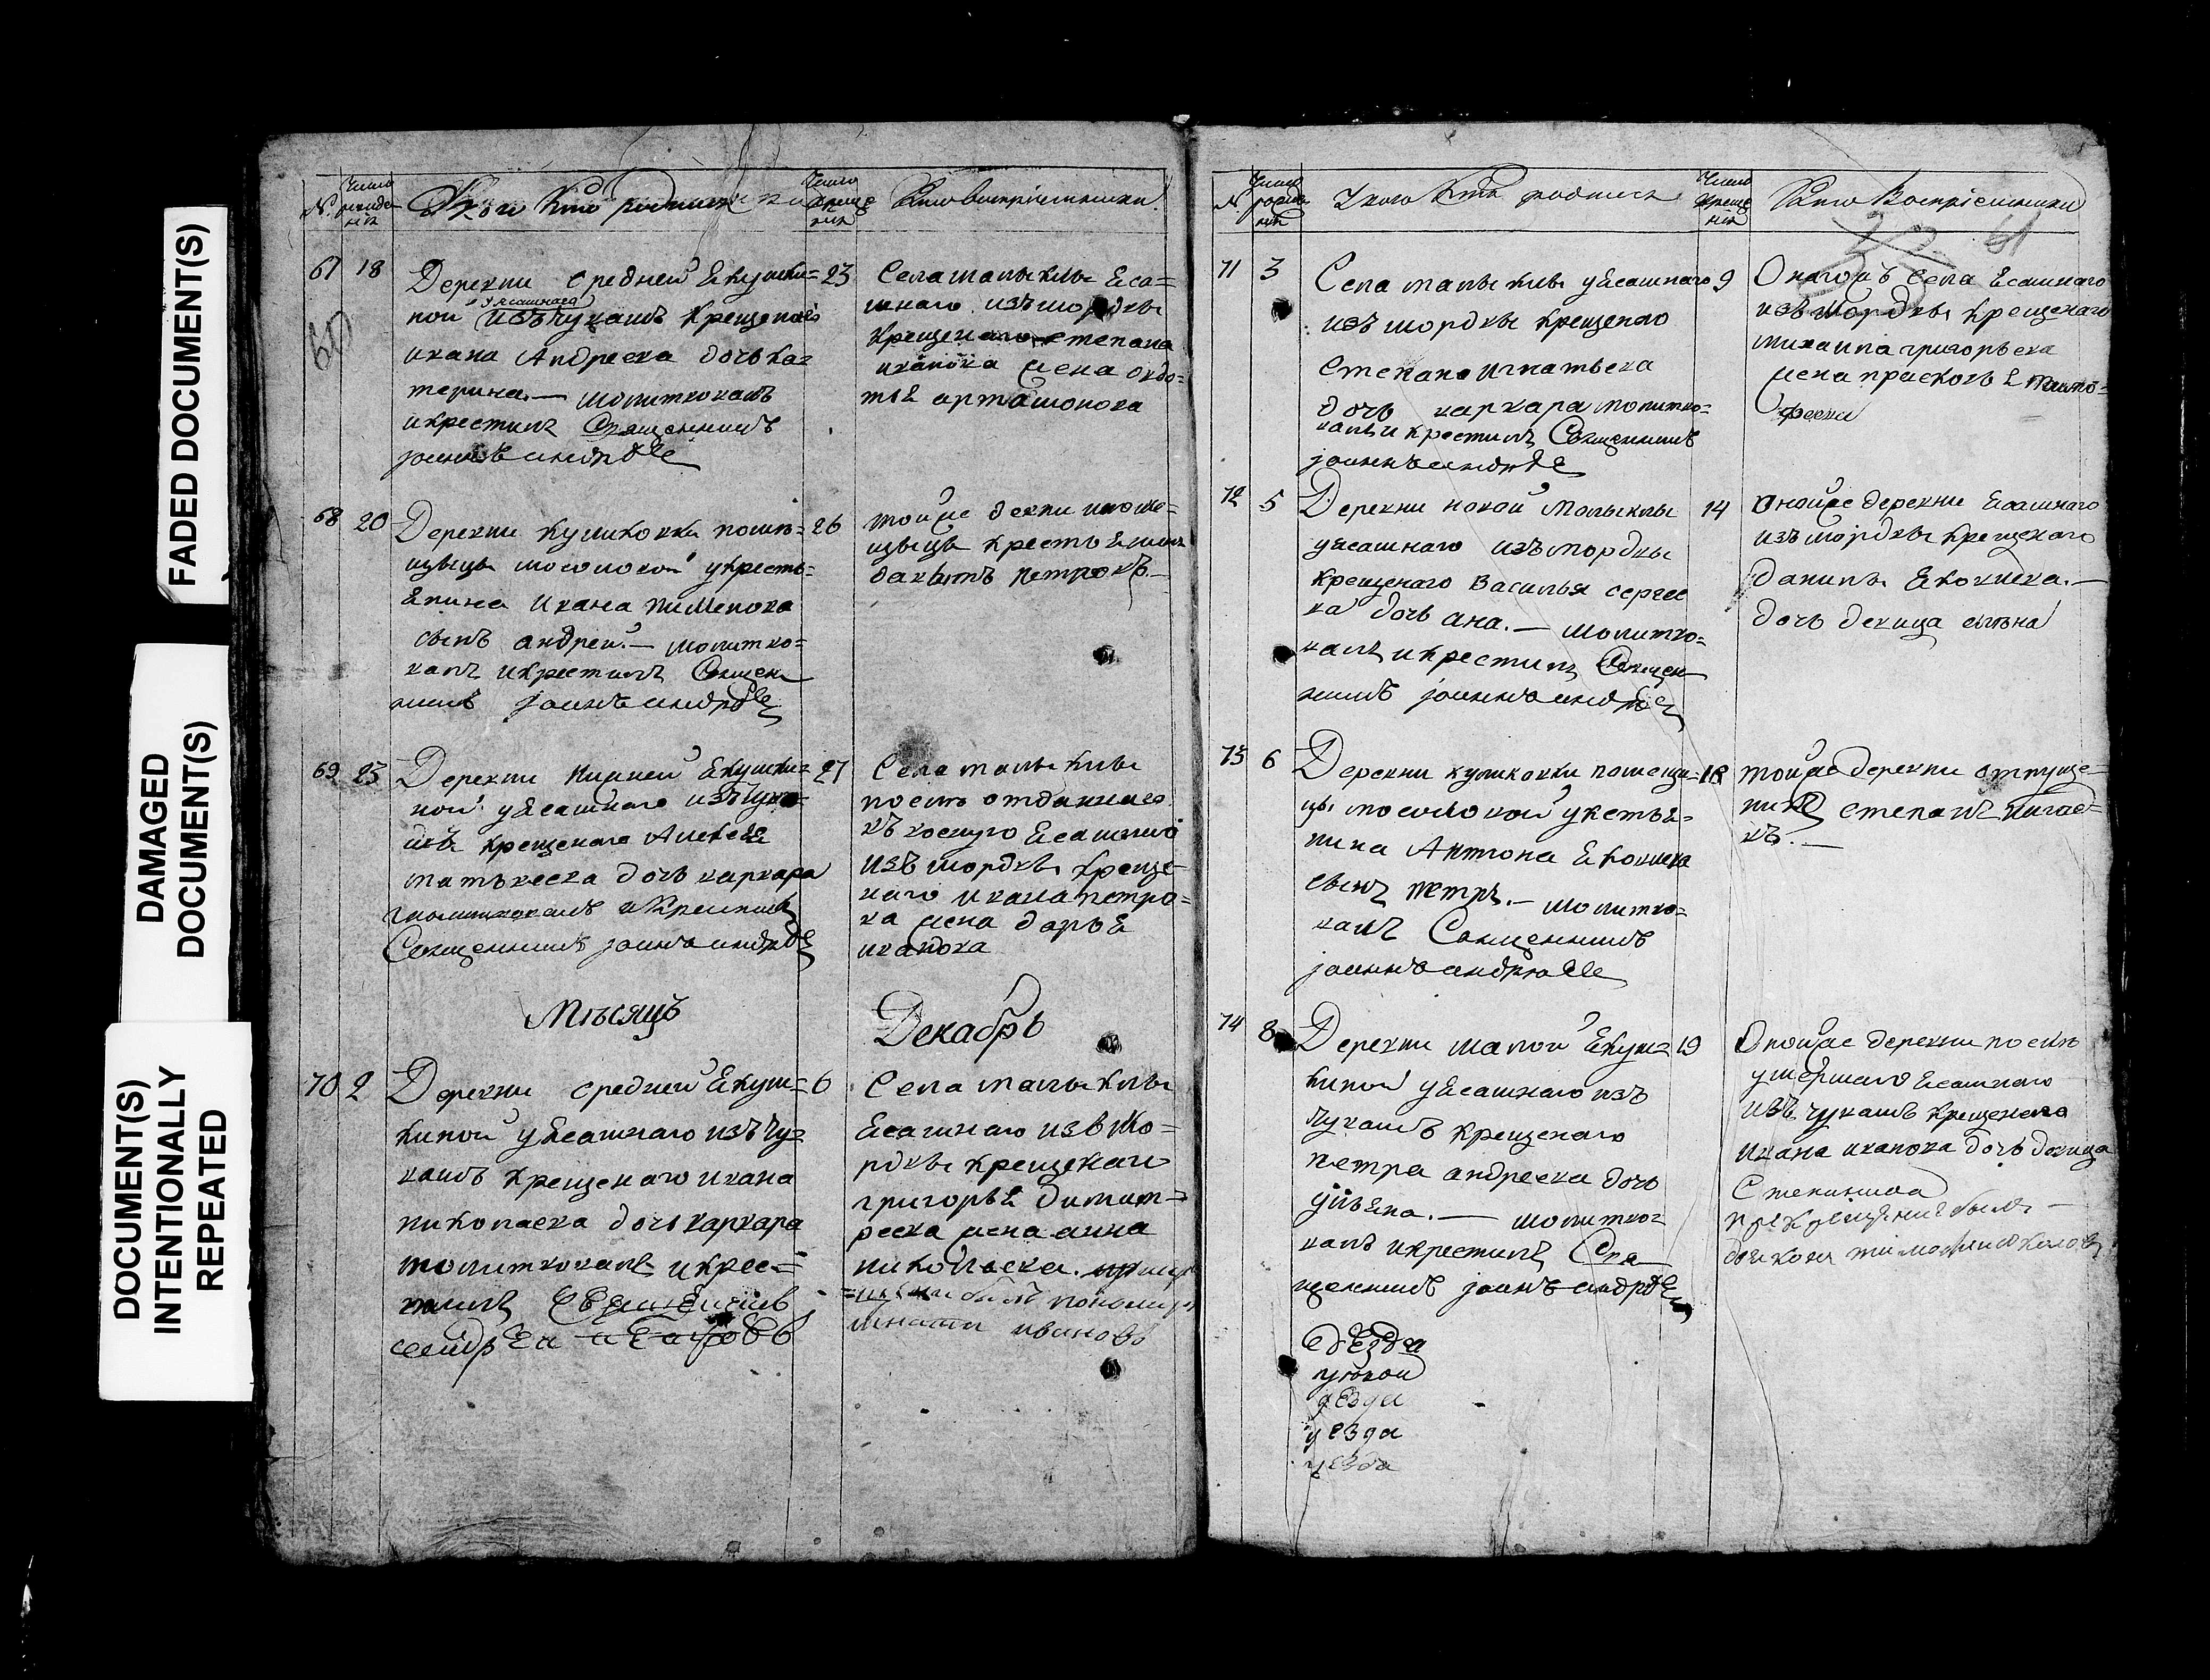 FADED DOCUMENT(S)
DAMAGED
DOCUMENT(S)
DOCUMENT(S)
INTENTIONALLY
REPEATED
№
Число рожденія
У кого кто родился
Число крещенія
Кто воспріемники
67 18
Деревни средней Екушки=
ной у ясашнаго изъ чувашъ крещенаго
ивана Андреева дочь ка=
терина.— молитвовалъ
и крестилъ Священникъ
іоаннъ андрѣе
23
Села малыклы Еса=
шнаго изъ мордвы
крещенаго степана
иванова жена овдо=
тьѣ артамонова
60
68 20
Деревни куликовки помѣ=
щицы мосоловой у кресть=
ѣнина ивана пименова
сынъ андрей.— молитво=
валъ и крестилъ Священ
никъ іоаннъ андрѣе
26
тойже девни помѣ=
щицы крестьѣнинъ
петровъ.—
69 23
Деревни нижней Екушки=
ной у ѣсашнаго изъ чува=
шъ крещенаго Алексѣѣ
матвеева дочь варвара
молитвовалъ и крестилъ
Священникъ іоаннъ андрѣе
27
Села малыклы
послѣ отданнаго
въ военую Есашнаго
изъ мордвы креще=
наго ивана петро=
ва жена дарьѣ
иванова
Мѣсяцъ Декабрь
70 2
Деревни средней Екуш=
киной у ѣсашнаго изъ чу=
вашъ крещенаго ивана
николаева дочь варвара
молитвовалъ и крес=
тилъ Священникъ
андрѣи
6
Села малыклы
Есашнаго изъ мо=
рдвы крещенаго
григорьѣ димит=
реева жена анна
николаева. при
былъ пономарь
игнати ивановъ
№
Число рожденія
У кого кто родился
Число крещенія
Кто Воспріемники
61
71 3
Села малыклы у Есашнаго
изъ мордвы крещенаго
степана игнатьева
дочь варвара молитво=
валъ и крестилъ Священникъ
іоаннъ андрѣе
9
Онагожъ села Есашнаго
изъ мордвы крещенаго
михаила григорьева
жена прасковьѣ тимо=
феева
72 5
Деревни новой малыклы
у ясашнаго изъ мордвы
крещенаго Василья сергее
ва дочь ана.— молитво=
валъ и крестилъ Священ
никъ іоаннъ андрѣе
14
Онойже деревни Есашнаго
изъ мордвы крещенаго
данилы Евокиева.—
дочь девица елѣна
73 6
Деревни куликовки помещи=
цы мосоловой у кстьѣ=
нина Антона Евокиева
сынъ петръ.— молитво=
валъ Священникъ
іоаннъ андрюѣе
18
тойже деревни отпуще=
никъ степанъ
въ.—
74 8
Деревни малой Екуш=
киной у Ѣсашнаго изъ
чувашъ крещенаго
петра андреева дочь
ульѣна.— молитво=
валъ и крестилъ Свя
щенникъ іоаннъ андрѣе
19
Онойже деревни послѣ
умершаго Есашнаго
изъ чувашъ крещенаго
ивана иванова дочь девица
Степанида
при крещение былъ
уѣзда
уѣзда
уѣзда
уѣзда